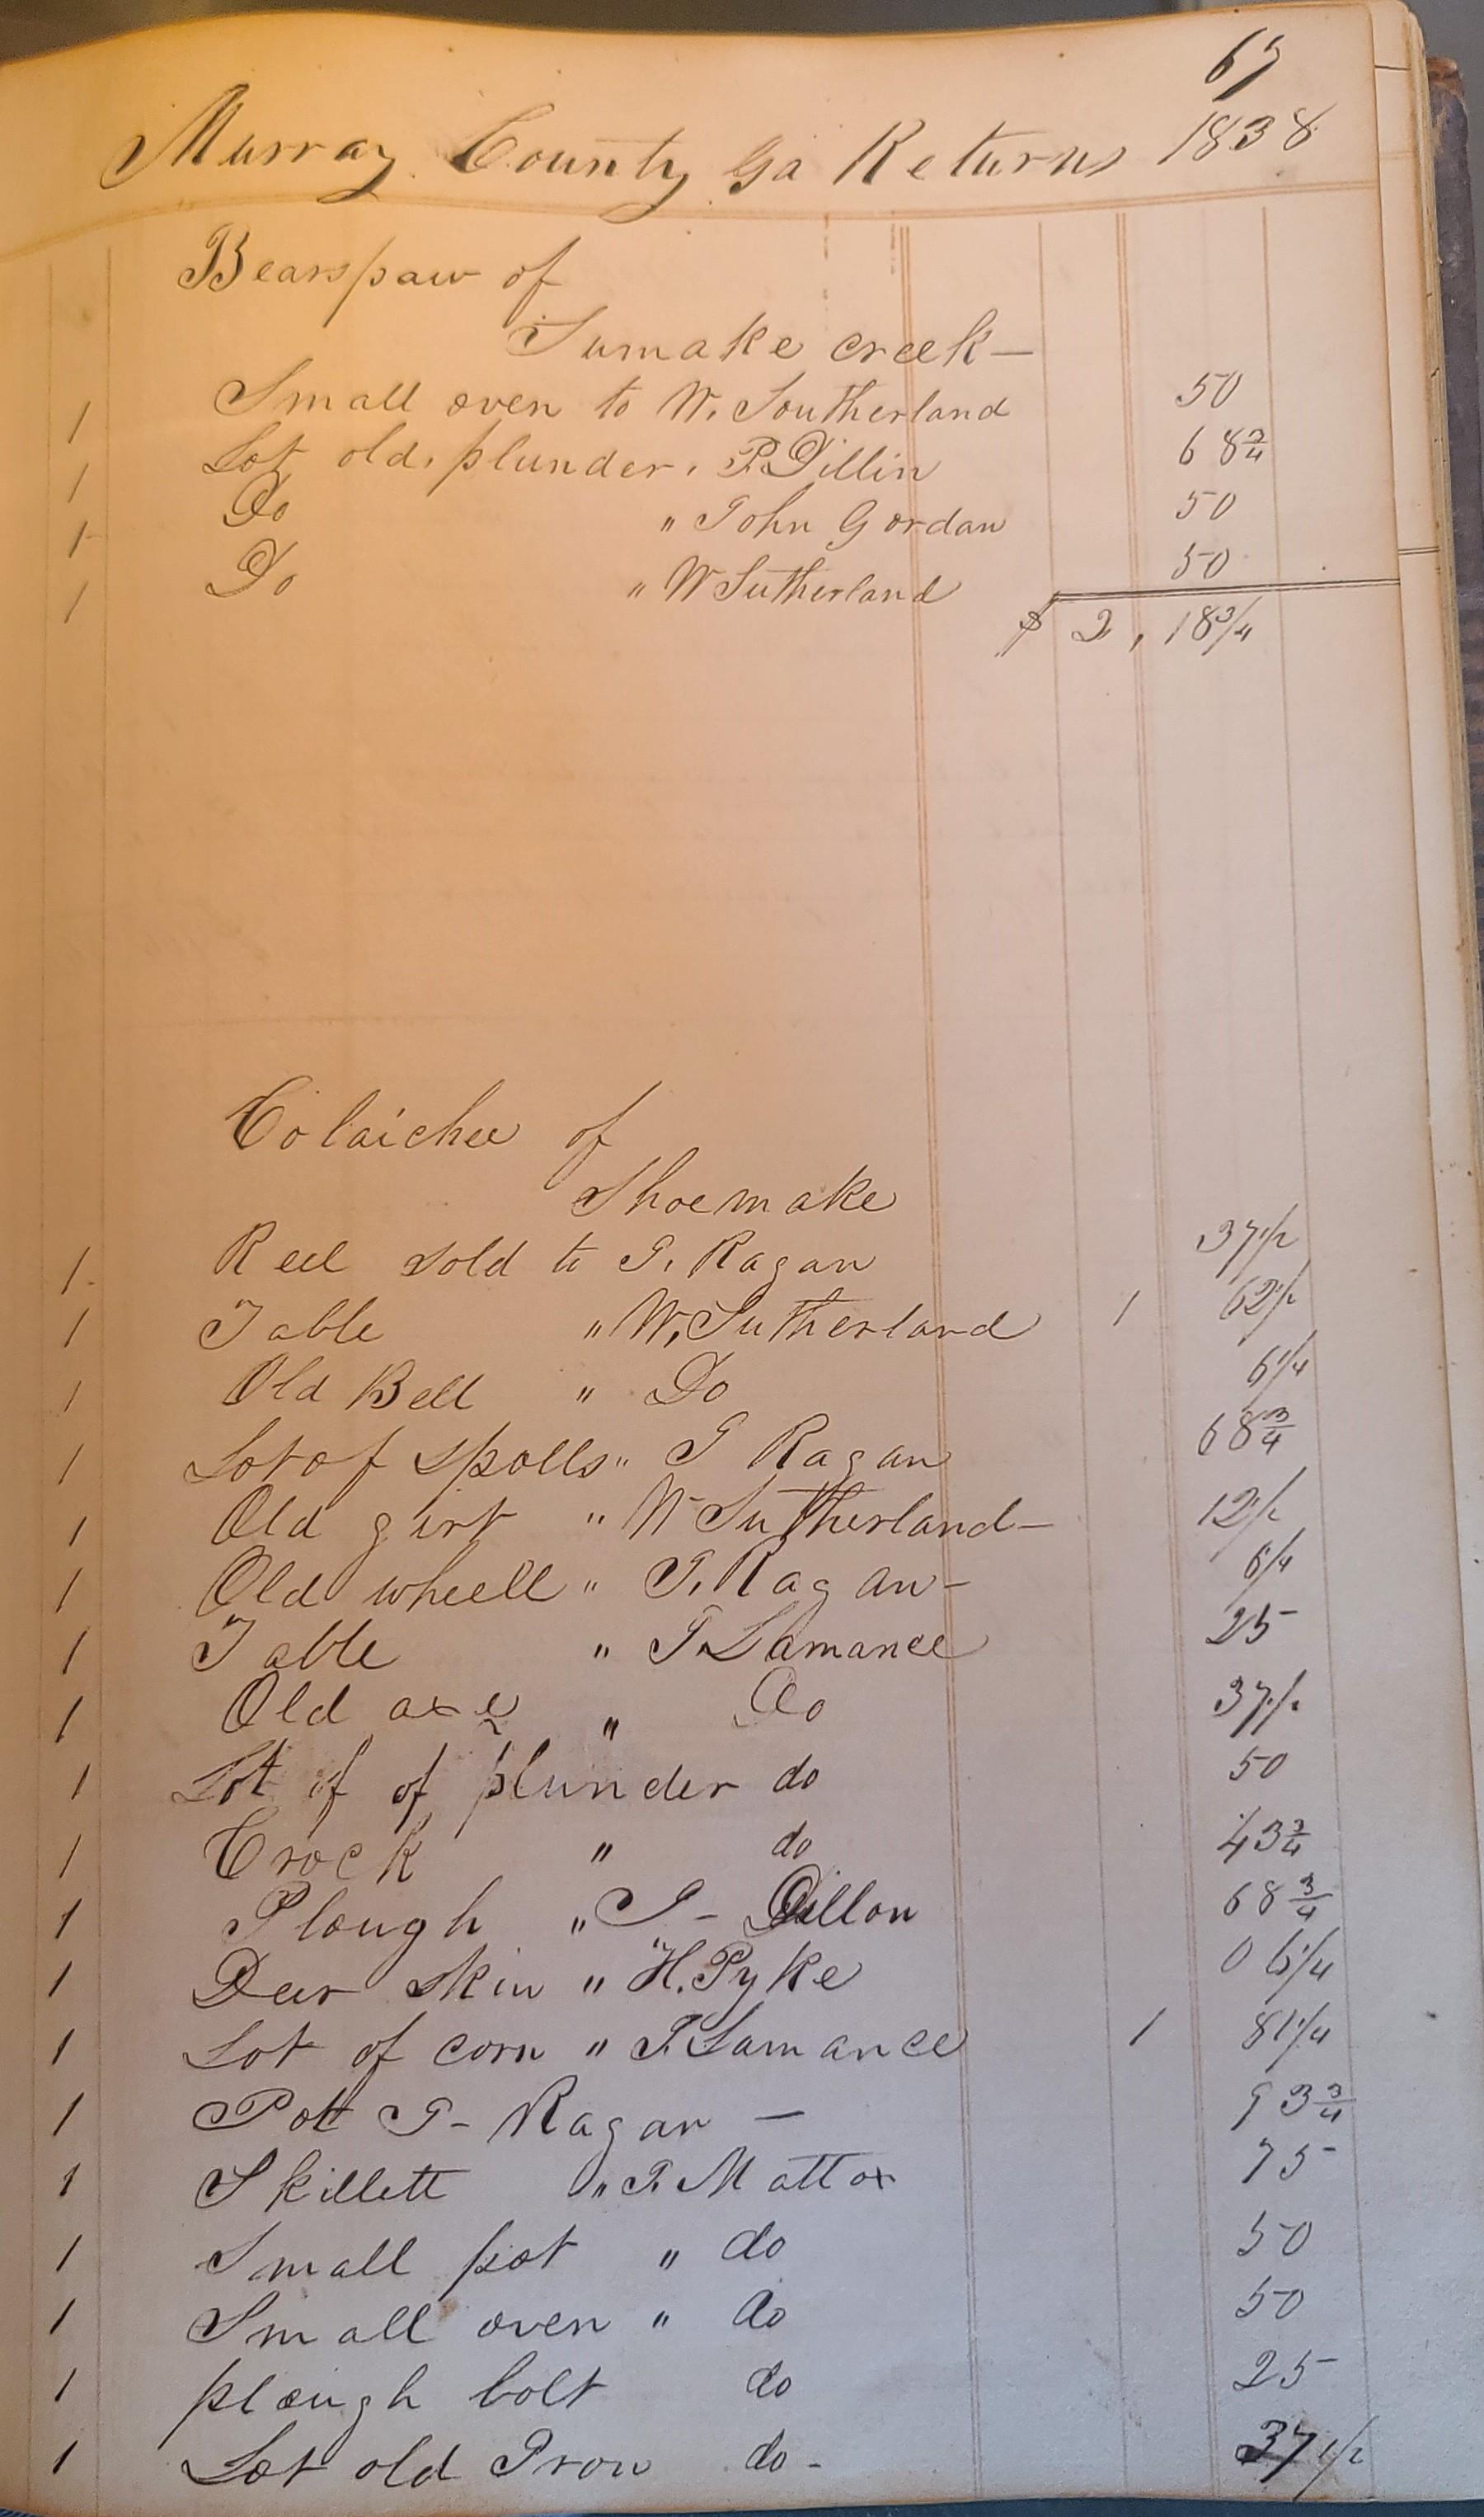 67
Murray County Ga Returns 1838
Bearspaw of
Sumake creek —
1 Small oven to W. Southerland 50
1 Lot old plunder " P. Dillin 68 3/4
1 Do " John Gordan 50
1 Do " W Sutherland 50
$ 2, 18 3/4
Colaichee of
Shoemake
1 Reel sold to J. Ragan 37 1/2
1 Table " W. Sutherland 1 62 1/2
1 Old Bell " Do 6 1/4
1 Lot of spolls " J Ragan 68 3/4
1 Old girt " W Sutherland — 12 1/2
1 Old wheell " J. Ragan - 6 1/4
1 Table " T. Lamance 25
1 Old axe " Do 37 1/2
1 Lot of of plunder do 50
1 Crock " do 43 3/4
1 Plough " J - Dillon 68 3/4
1 Deer skin " H. Pyke 06 1/4
1 Lot of corn " T. Lamance 1 81 1/4
1 Pott J - Ragan — 93 3/4
1 Skillett " T. Mattox 75
1 Small pot " do 50
1 Small oven " do 50
1 plough bolt do 25
1 Lot old Iron do - 37 1/2